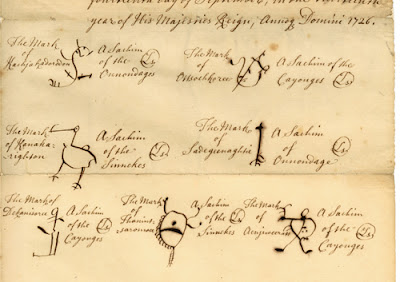 fourteenth day of September, in the twentieth
year of His Majesties Reign, Annoq Domini 1746.
The Mark
of
A Sachim
of the
Onnondages
Ls
The Mark
of
A Sachim of the
Cayonges
Ls
The Mark
of Konaka-
righton
A Sachim
of the
Sinnekes
Ls
The Mark
of
Sadegeenaghtie
A Sachim
of
Onnondage
Ls
The Mark of
Dekanisore
A Sachim
of the
Cayonges
Ls
The Mark
of
A Sachim
of the
Sinnekes
Ls
The Mark
of
A Sachim
of the
Cayonges
Ls